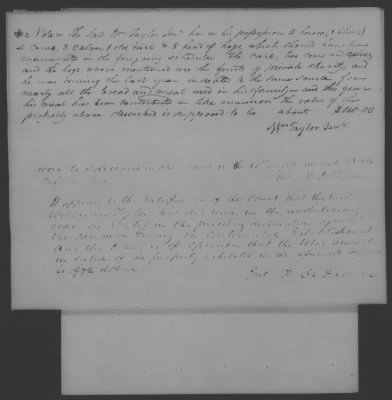 Note = The Said Wm Taylor Senr has in his possession 2 horses, (1 blind)
2 Cows, 3 Calves, 1 old cart & 8 head of hogs, which should have been
enumerated in the foregoing schedule. The cart, two cows and calves,
and the hogs above mentioned are the fruits of private charity, and
he was during the last year indebted to the same source for
nearly all the bread and meat used in his family, and this year
his meal has been contributed in like manner the value of the
property above described is supposed to be about $140.00
Wm Taylor Senr
sworn to & declared in open court on the
before me
It appears to the satisfaction of the Court that the said
William Taylor Senr did serve in the revolutionary
war as stated in the preceding declaration against
the common enemy on Continental Establishment
and the Court is of opinion that the total amount
in value of the property exhibited in the aforesaid schedule
is $972 dollars